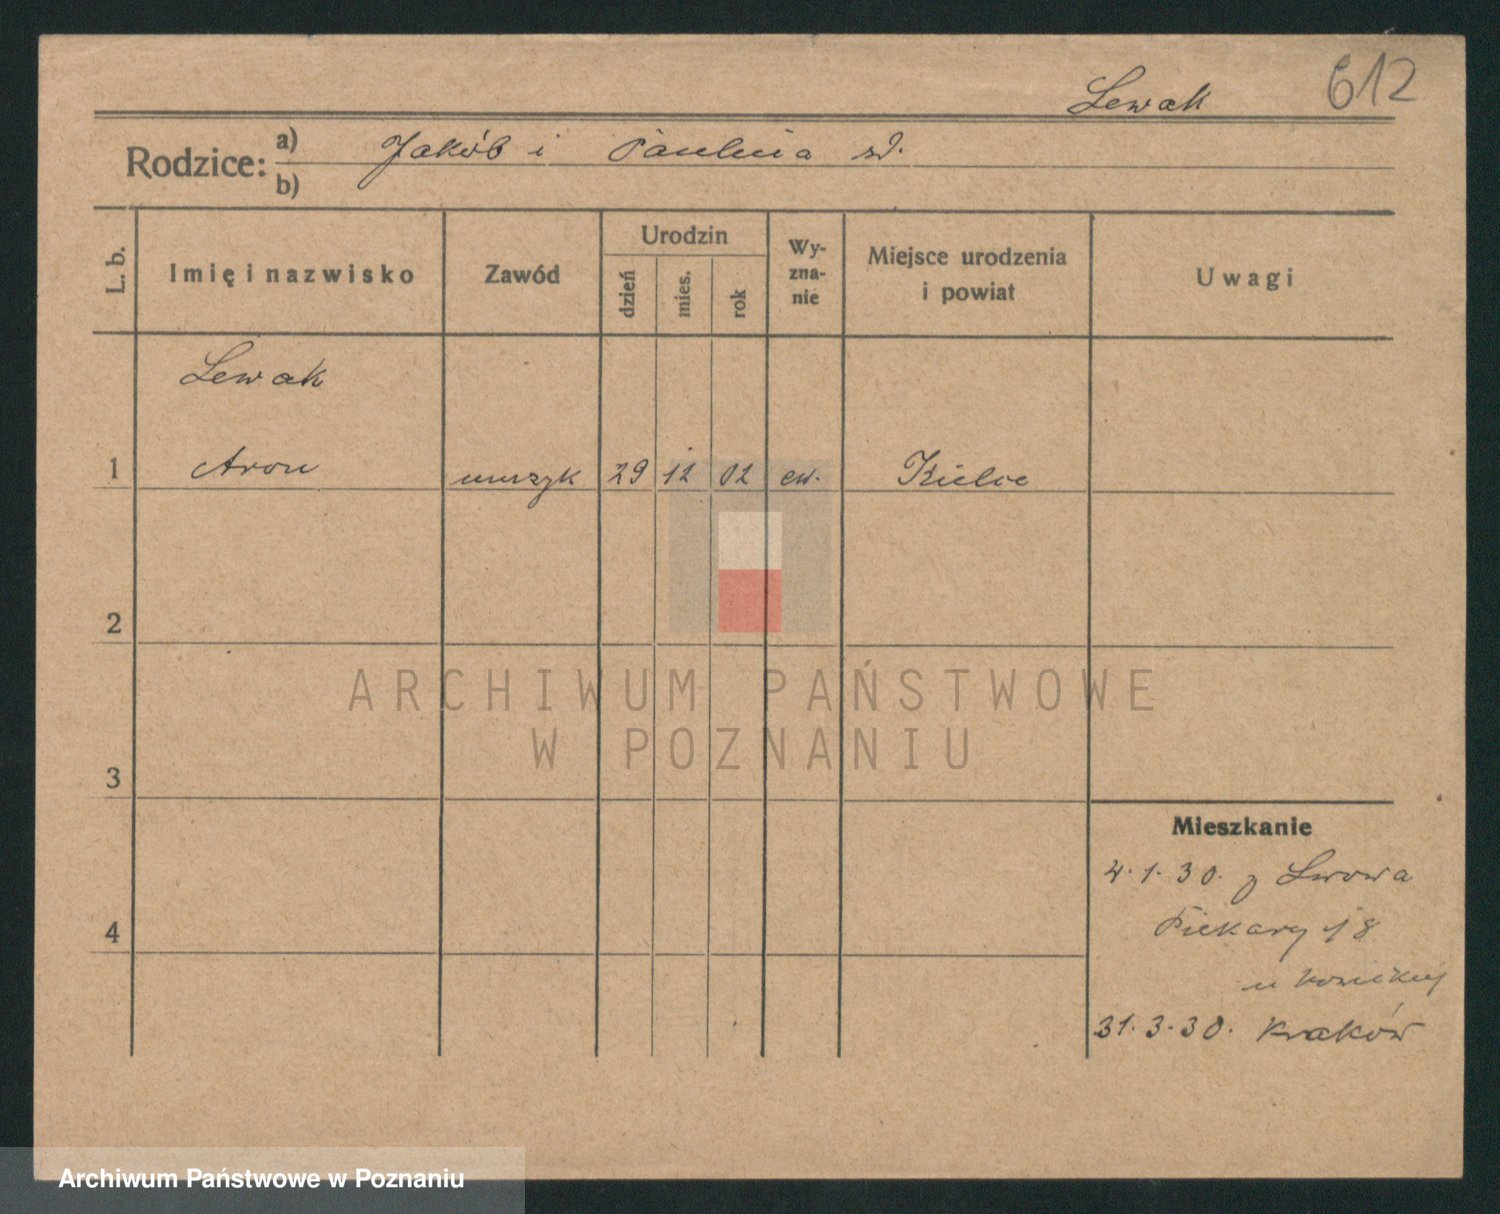 Lewak 612
Rodzice: a) Jakób i Paulina
b)
L. b.
Imię i nazwisko
Zawód
Urodzin
dzień
mies.
rok
Wy-
zna-
nie
Miejsce urodzenia
i powiat
Uwagi
Lewak
1 Aron muzyk 29 12 02 ew. Kielce
2
3
4
ARCHIWUM PAŃSTWOWE
W POZNANIU
Mieszkanie
4.1.30. z Lwowa
Piekary 18
u
31.3.30. Kraków
Archiwum Państwowe w Poznaniu